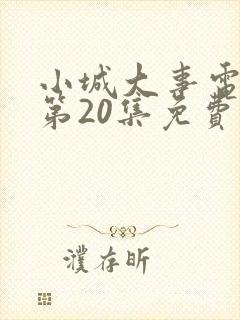 小城大事電
第20集免費
濮存昕